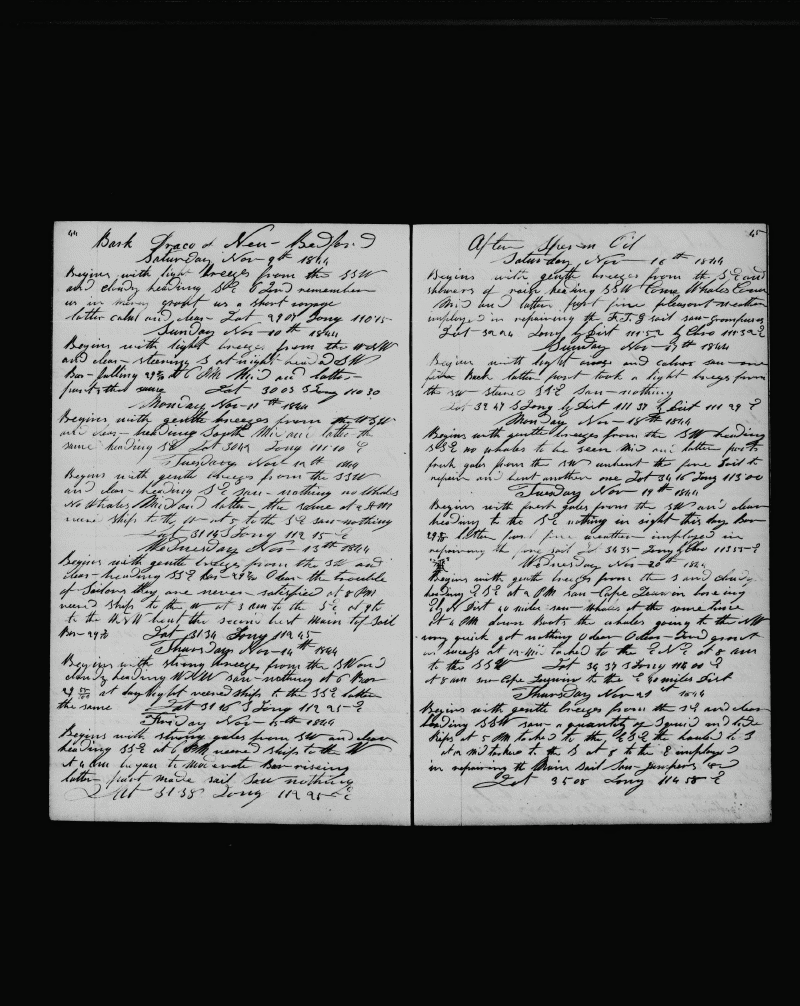 44
Bark Draco of New-Bedford
Saturday Nov 9th 1844
Begins with light breezes from the SSW
and cloudy heading SE O Lord remember
us in mercy grant us a short voyage
latter calm and clear Lat 29 07 Long 110 45
Sunday Nov 10th 1844
Begins with light breezes from the WSW
and clear steering S at night headed SW
Bar falling at 6 PM Mid and latter
parts the same Lat 30 03 S Long 110 30
Monday Nov 11th 1844
Begins with gentle breezes from the WSW
and clear heading South Mid and latter the
same heading SE Lat Long 111 10 E
Tuesday Nov 12th 1844
Begins with gentle breezes from the SSW
and clear heading SE saw nothing no whales
No Whales Mid and latter the same at 2 AM
weare ship to the W at 5 to the SE saw nothing
Lat 31 15 S Long 112 15 E
Wednesday Nov 13th 1844
Begins with gentle breezes from the SW and
clear heading SSE Bar O dear the trouble
of Sailors they are never satisfied at 8 PM
weared Ship to the W at 3 AM to the SE at
to the WSW bent the second best Main top Sail
Bar Lat 31 34 Long 112 45
Thursday Nov 14th 1844
Begins with strong breezes from the SW and
cloudy heading WNW saw nothing at 6 Bar
at day light weared ship to the SSE latter
the same Lat 31 16 S Long 112 25 E
Friday Nov 15th 1844
Begins with strong gales from SW and clear
heading SSE at 6 PM weared ship to the W
At 4 AM began to moderate Bar rising
latter part made sail Saw nothing
Lat 31 38 Long 112 25 E
45
After Sperm Oil
Saturday Nov 16th 1844
Begins with gentle breezes from the SE and
showers of rain heading SSW Come Whales Come
Mid and latter part fine pleasant weather
employed in repairing the F.T.G sail saw grampuses
Lat 32 24 Long by Dist 111 52 by Chro 111 32 E
Sunday Nov 17th 1844
Begins with light and calms saw one
Back latter part took a light breeze from
the SW steared SSE saw nothing
Lat 32 47 S Long by Dist 111 37 by Dist 111 29 E
Monday Nov 18th 1844
Begins with gentle breezes from the SW heading
SSE no whales to be seen Mid and latter parts
fresh gales from the SW unbent the fore Sail to
repair and bent another one Lat 34 16 Long 113 00
Tuesday Nov 19th 1844
Begins with fresh gales from the SW and clear
heading to the SE nothing in sight this day Bar
latter part fine weather employed in
repairing the fore sail Lat 34 35 Long by Chro 113 55 E
Wednesday Nov 20th 1844
Begins with gentle breezes from the S and cloudy
heading ESE at 2 PM saw Cape Leeuwin bearing
E by N Dist 40 miles saw whales at the same time
At 4 PM down Boats the whales going to the NW
very quick got nothing O dear O dear Lord grant
us success at 12 Mid tacked to the ENE at 8 AM
to the SSW Lat 34 37 S Long 114 00 E
at 8 AM saw Cape Leeuwin to the E 40 miles Dist
Thursday Nov 21st 1844
Begins with gentle breezes from the SE and clear
heading SSW saw a quantity of Squid and tide
Rips at 5 PM tacked to the ESE she headed to S
at mid tacked to the S at 8 to the E employed
in repairing the Main Sail Saw jumpers &c
Lat 35 08 Long 114 58 E